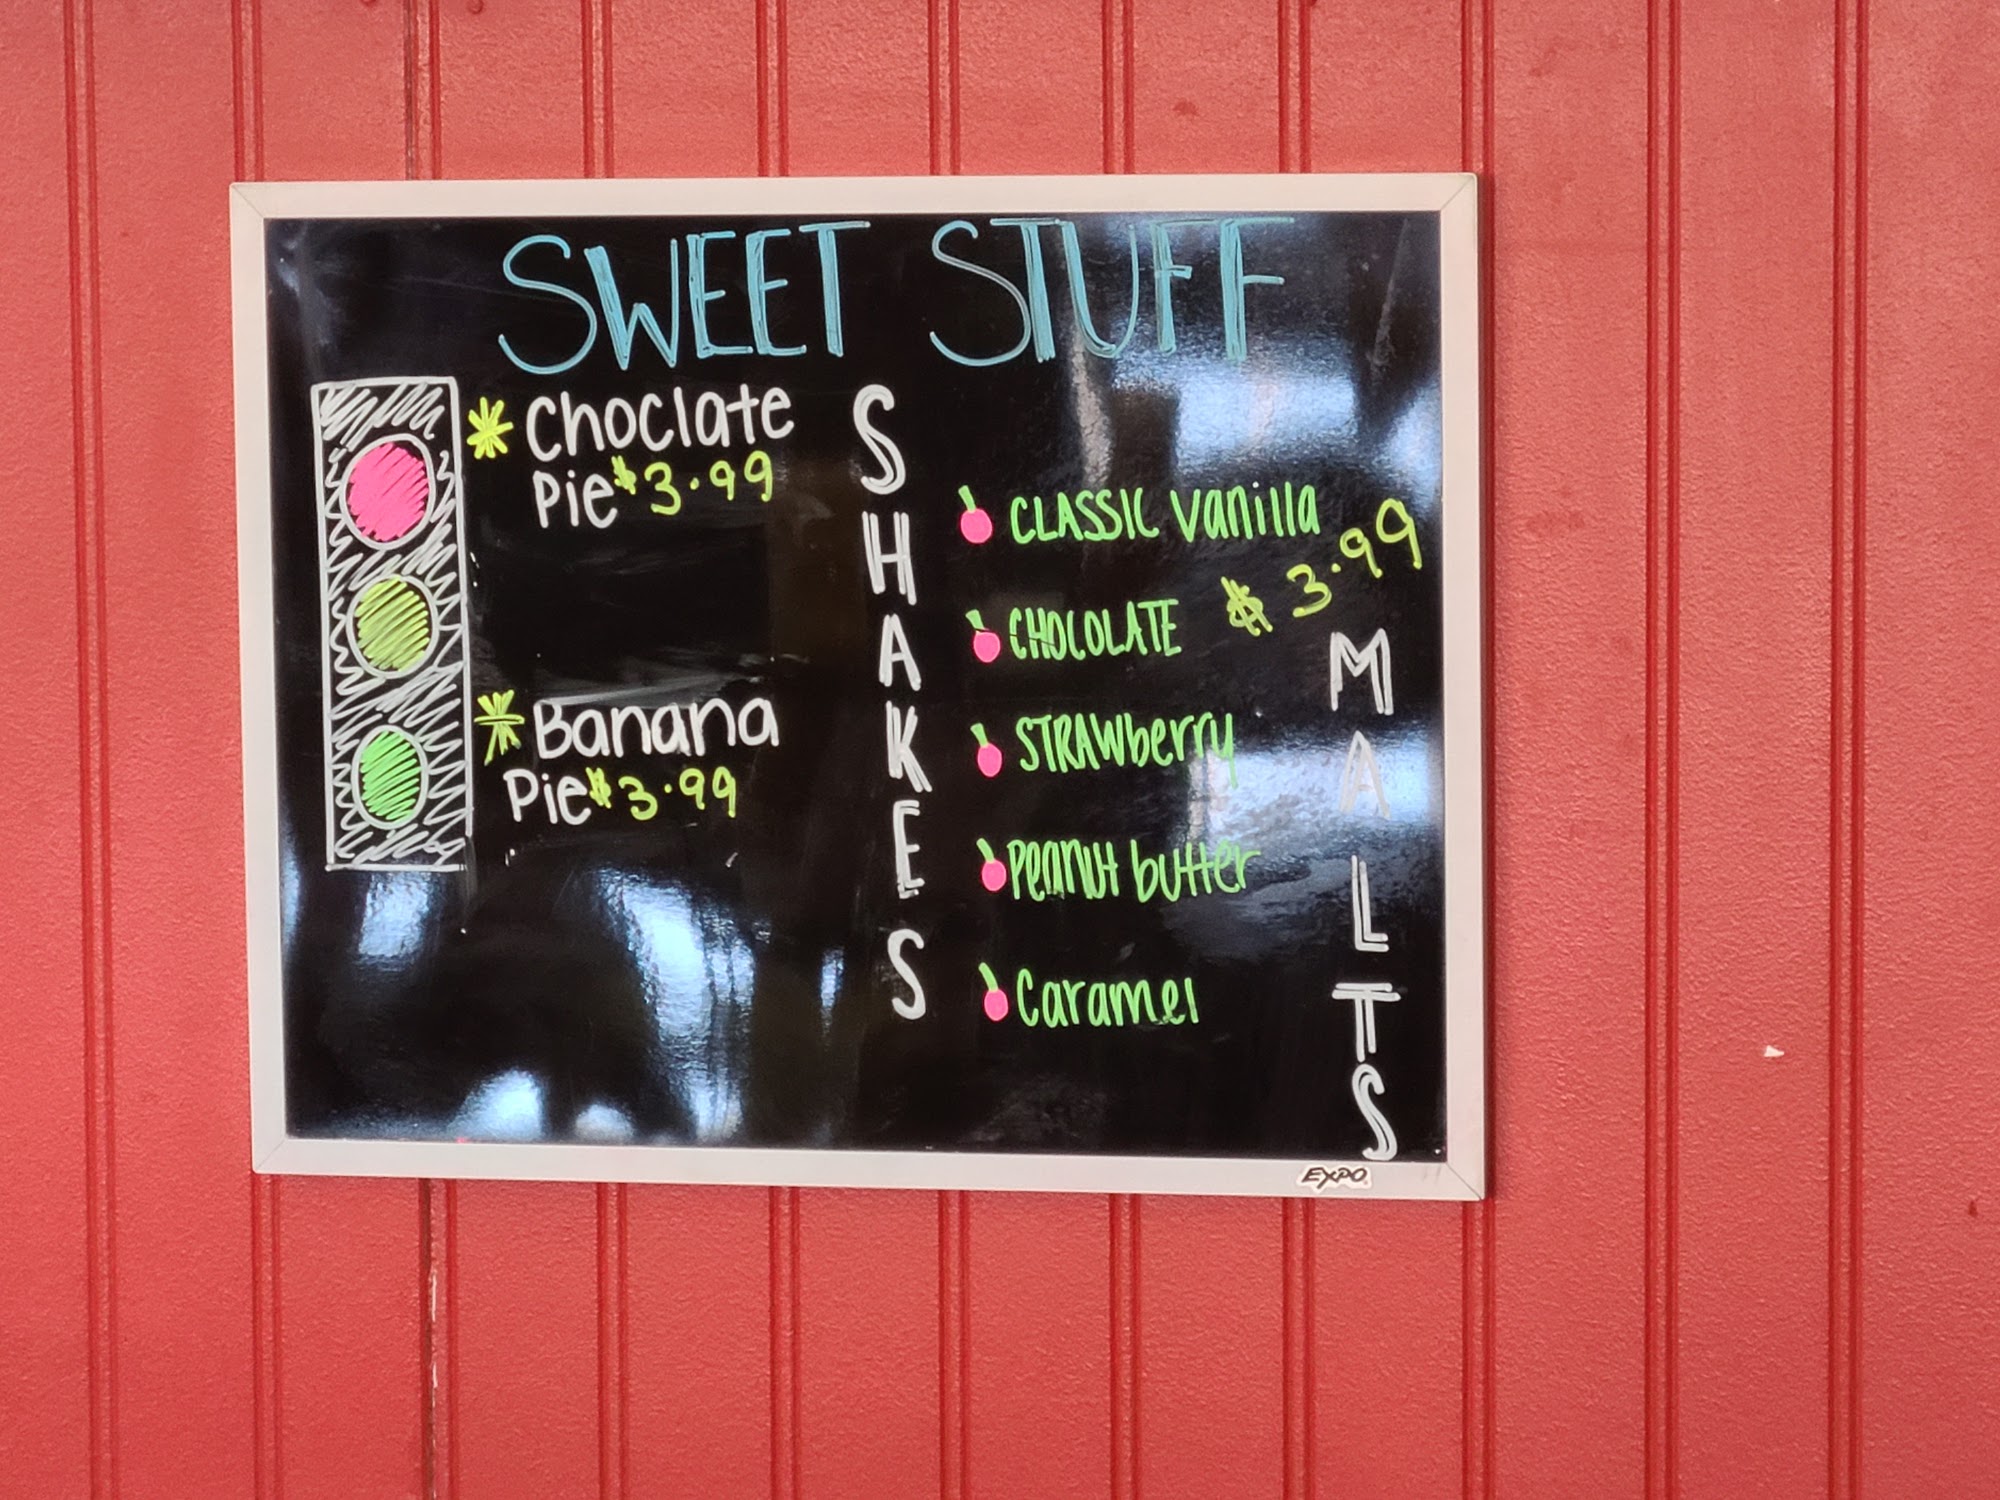 SWEET STUFF
* Choclate
Pie $3.99
* Banana
Pie $3.99
SHAKES
CLASSIC vanilla
$3.99
CHOCOLATE
STRAWberry
Peanut butter
Caramel
MALTS
EXPO